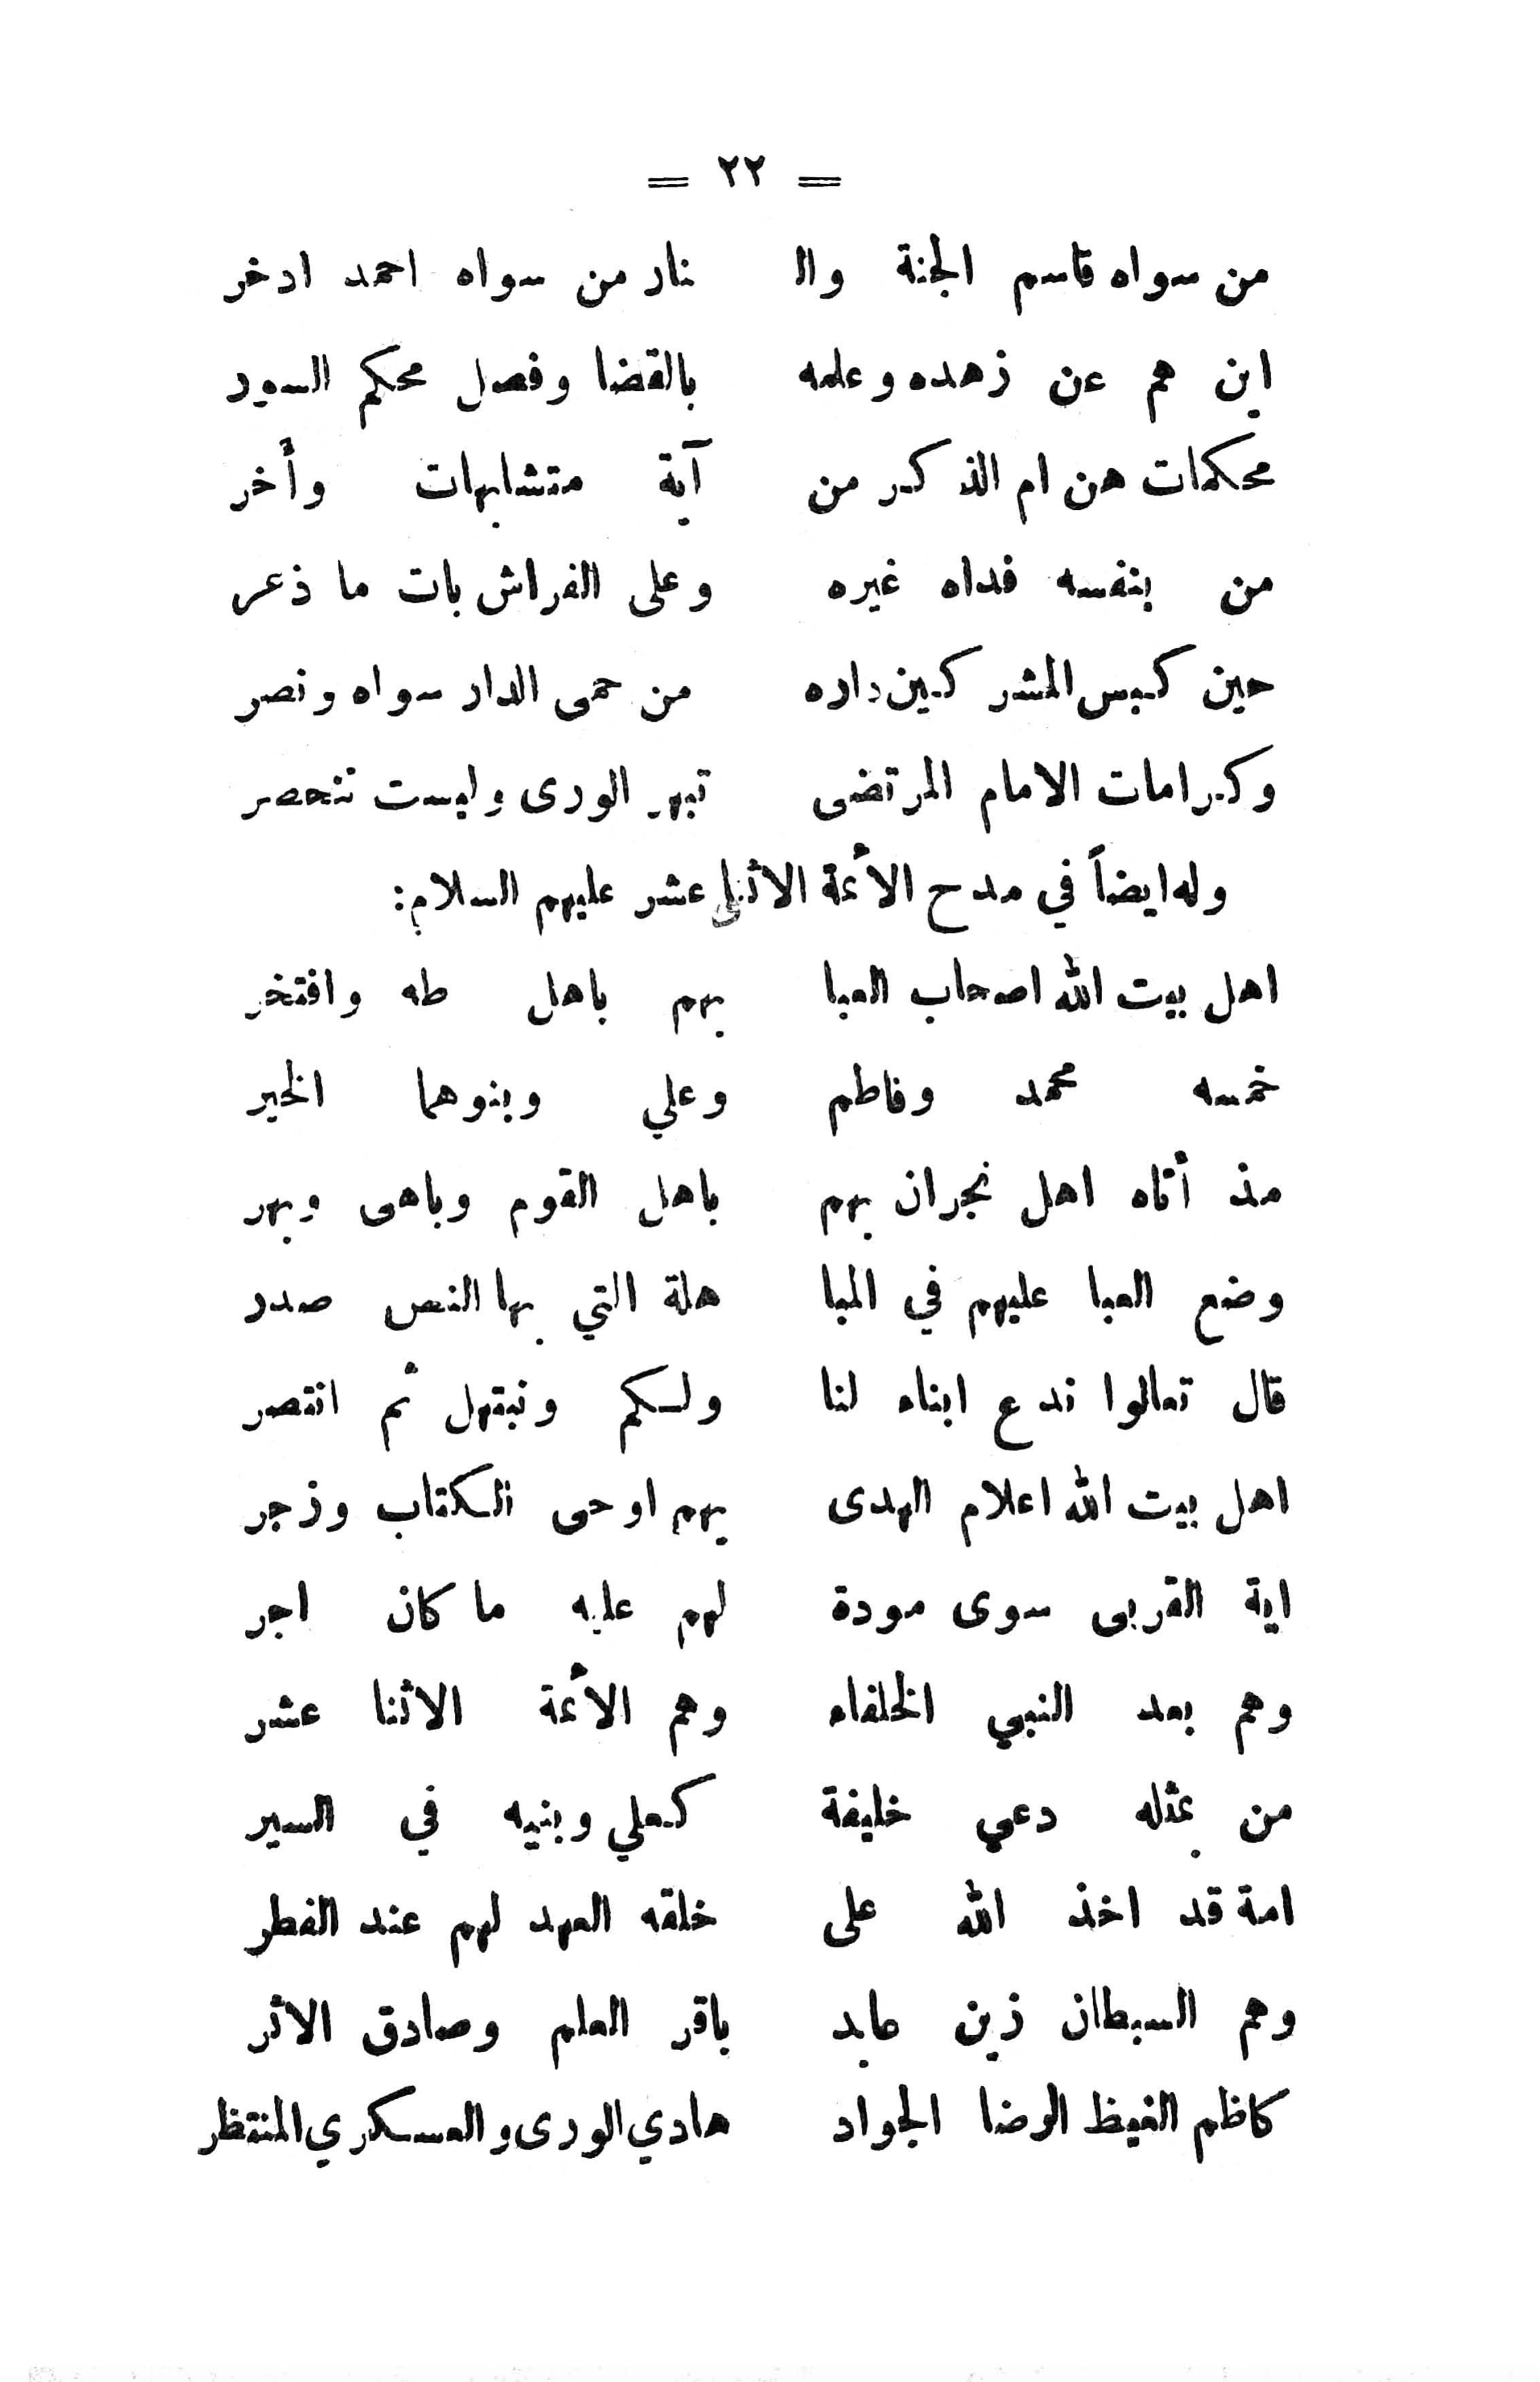 = ٢٢ =
من سواه قاسم الجنة وال نار من سواه احمد ادخر
اين هم عن زهده وعلمه بالقضا وفصل محكم السور
محكمات هن ام الذكر من آية متشابهات وأخر
من بنفسه فداه غيره وعلى الفراش بات ما ذعر
حين كبس المشركين داره من حمى الدار سواه ونصر
وكرامات الامام المرتضى تبهر الورى وليست تنحصر
وله ايضاً في مدح الأئمة الاثني عشر عليهم السلام:
اهل بيت الله اصحاب العبا بهم باهل طه وافتخر
خمسه محمد وفاطم وعلي وبنوهما الخير
مذ أتاه اهل نجران بهم باهل القوم وباهى وبهر
وضع العبا عليهم في المبا هلة التي بها النص صدر
قال تعالوا ندع ابناء لنا ولكم ونبتهل ثم انتصر
اهل بيت الله اعلام الهدى بهم اوحى الكتاب وزجر
اية القربى سوى مودة لهم عليه ما كان اجر
وهم بعد النبي الخلفاء وهم الأئمة الاثنا عشر
من بمثله دعي خليفة كعلي وبنيه في السير
امة قد اخذ الله على خلقه العهد لهم عند الفطر
وهم السبطان زين عابد باقر العلم وصادق الاثر
كاظم الغيظ الرضا الجواد هادي الورى والعسكري المنتظر